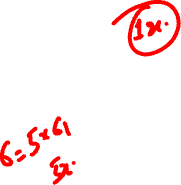 1x.
6=5×61
5x.